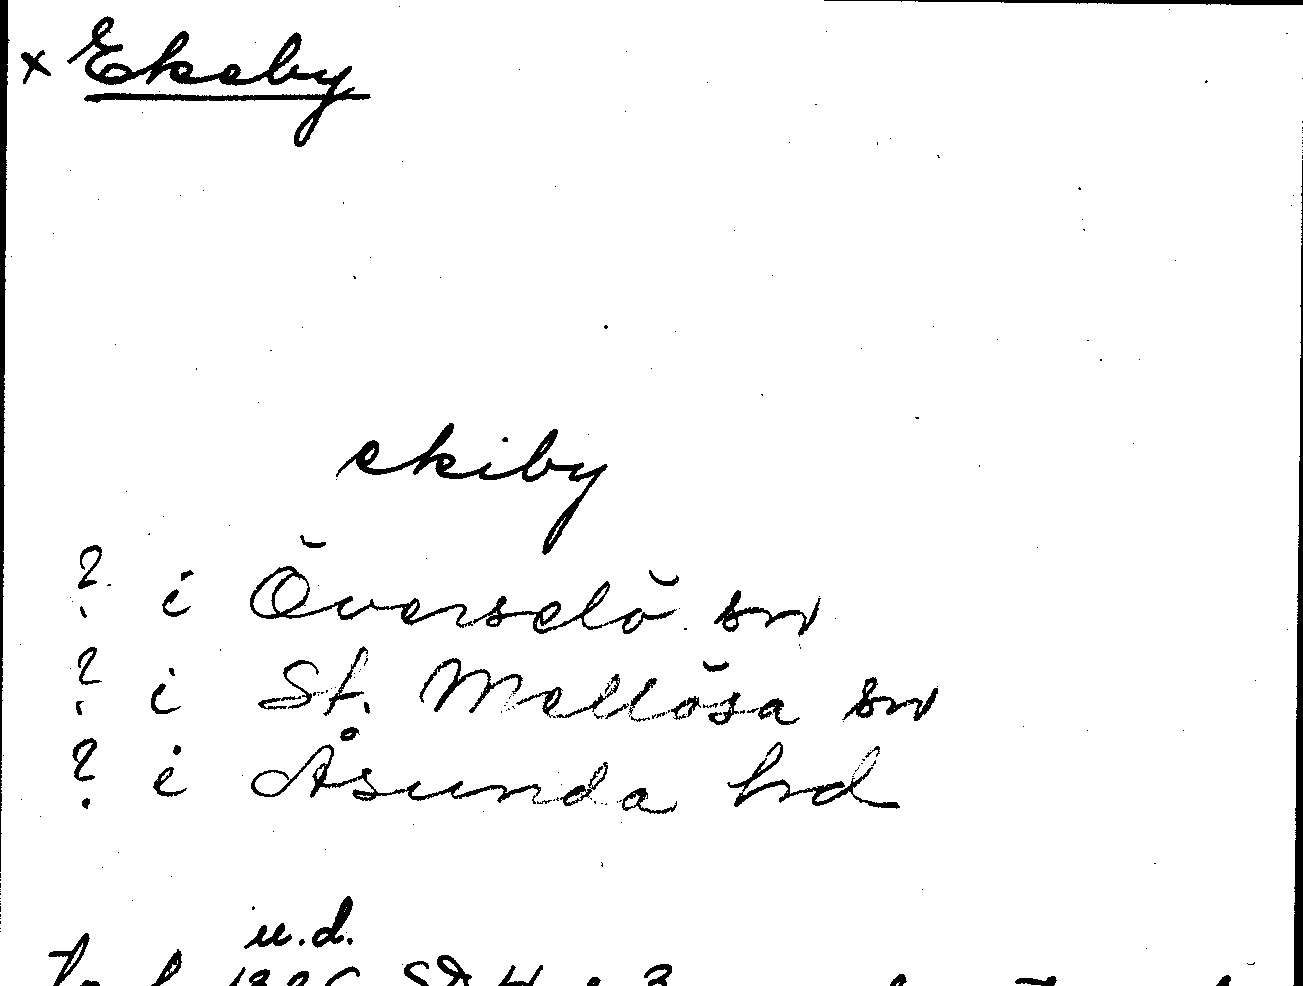 x Ekeby
ekiby
? i Överselö sn
? i St. Mellösa sn
? i Åsunda hrd
u.d.